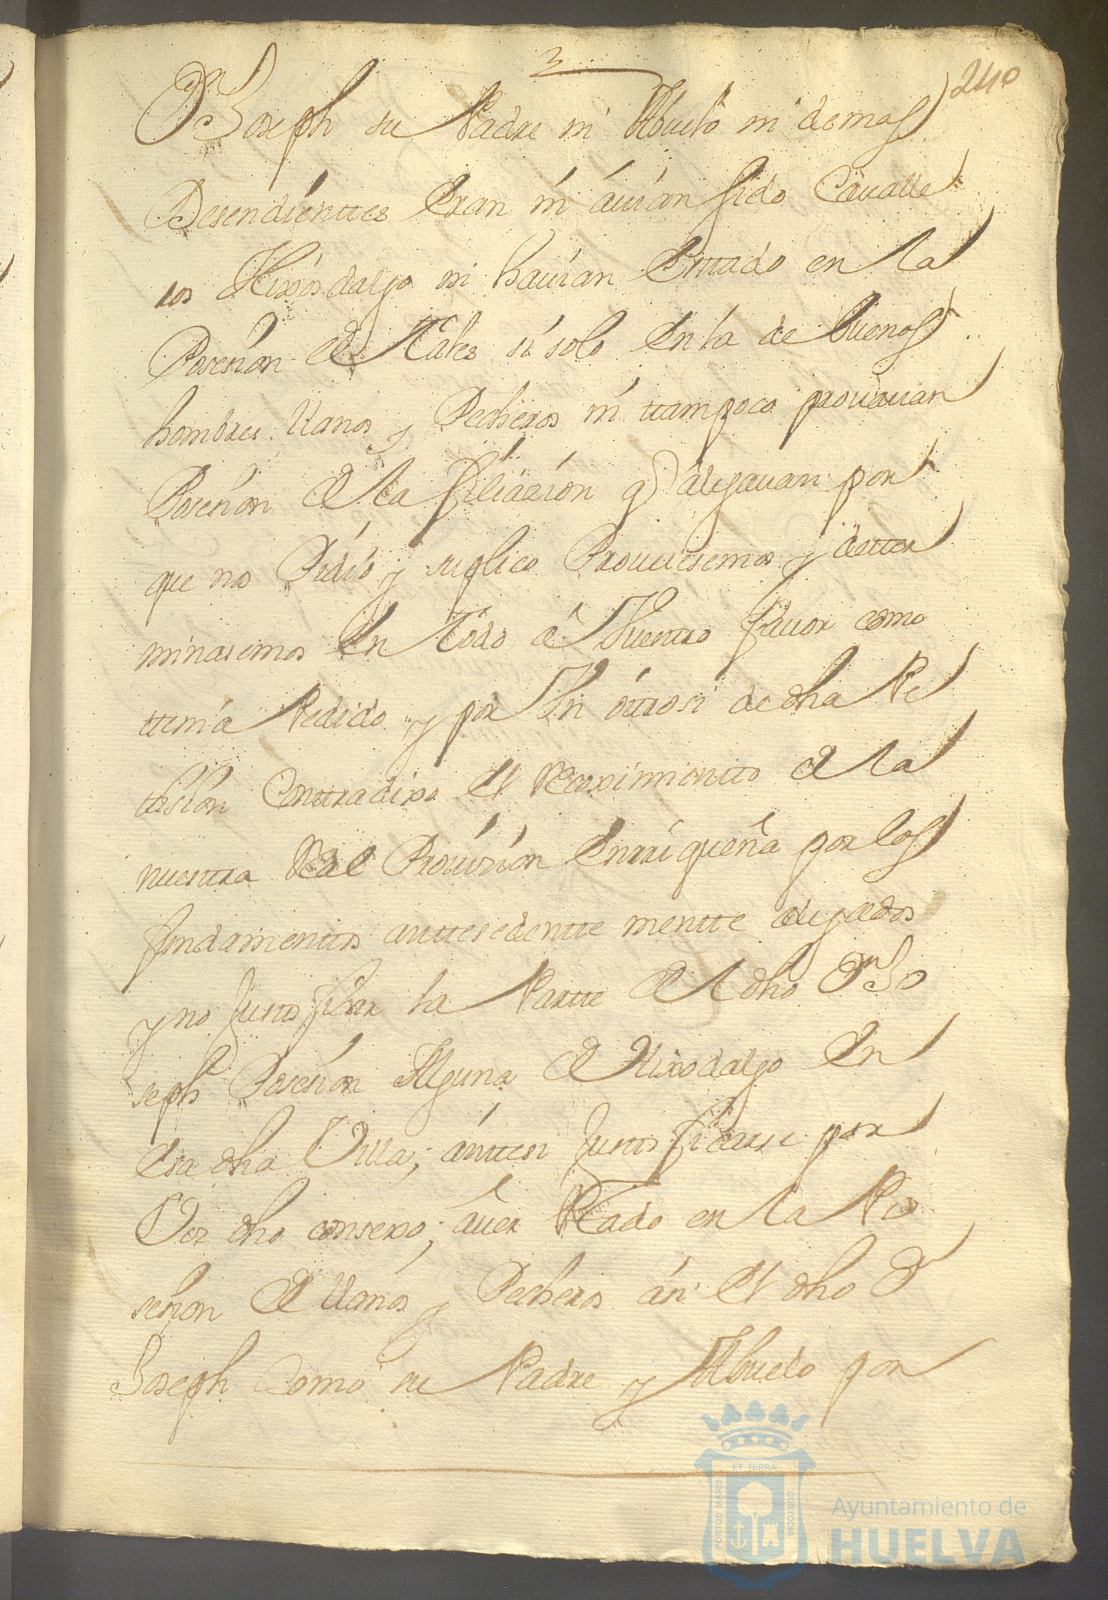 3
240
Dn Joseph su Padre ni Abuelo ni demas
Desendienttes Eran ni avian sido Cavalle
ros Hixosdalgo ni havian Esttado en la
Poseſion de Tales si solo En la de buenos
hombres llanos y Pecheros ni ttampoco provavan
Poseſion de la filiazion q alegavan por
que nos Pidio y suplico Proveiesemos y detter
minasemos En Todo a su favor como
ttenia Pedido y por Un otrosi de dha Pe
tision Conttradixo El Recivimientto de la
nuestra Real Provizion Enrriqueña por los
fundamenttos anttesedentte mentte alegados
y no Justificar la Partte del dho Dn Jo
seph Poseſion Alguna de Hixodalgo En
Esa dha Villa; anttes Justificarse por
dho consexo; aver esttado en la Po
seſion de llanos y Pecheros asi El dho Dn
Joseph Como su Padre y Abuelo por
ET TERRÆ
PORTUS MARIS
CUSTODIA
Ayuntamiento de
HUELVA